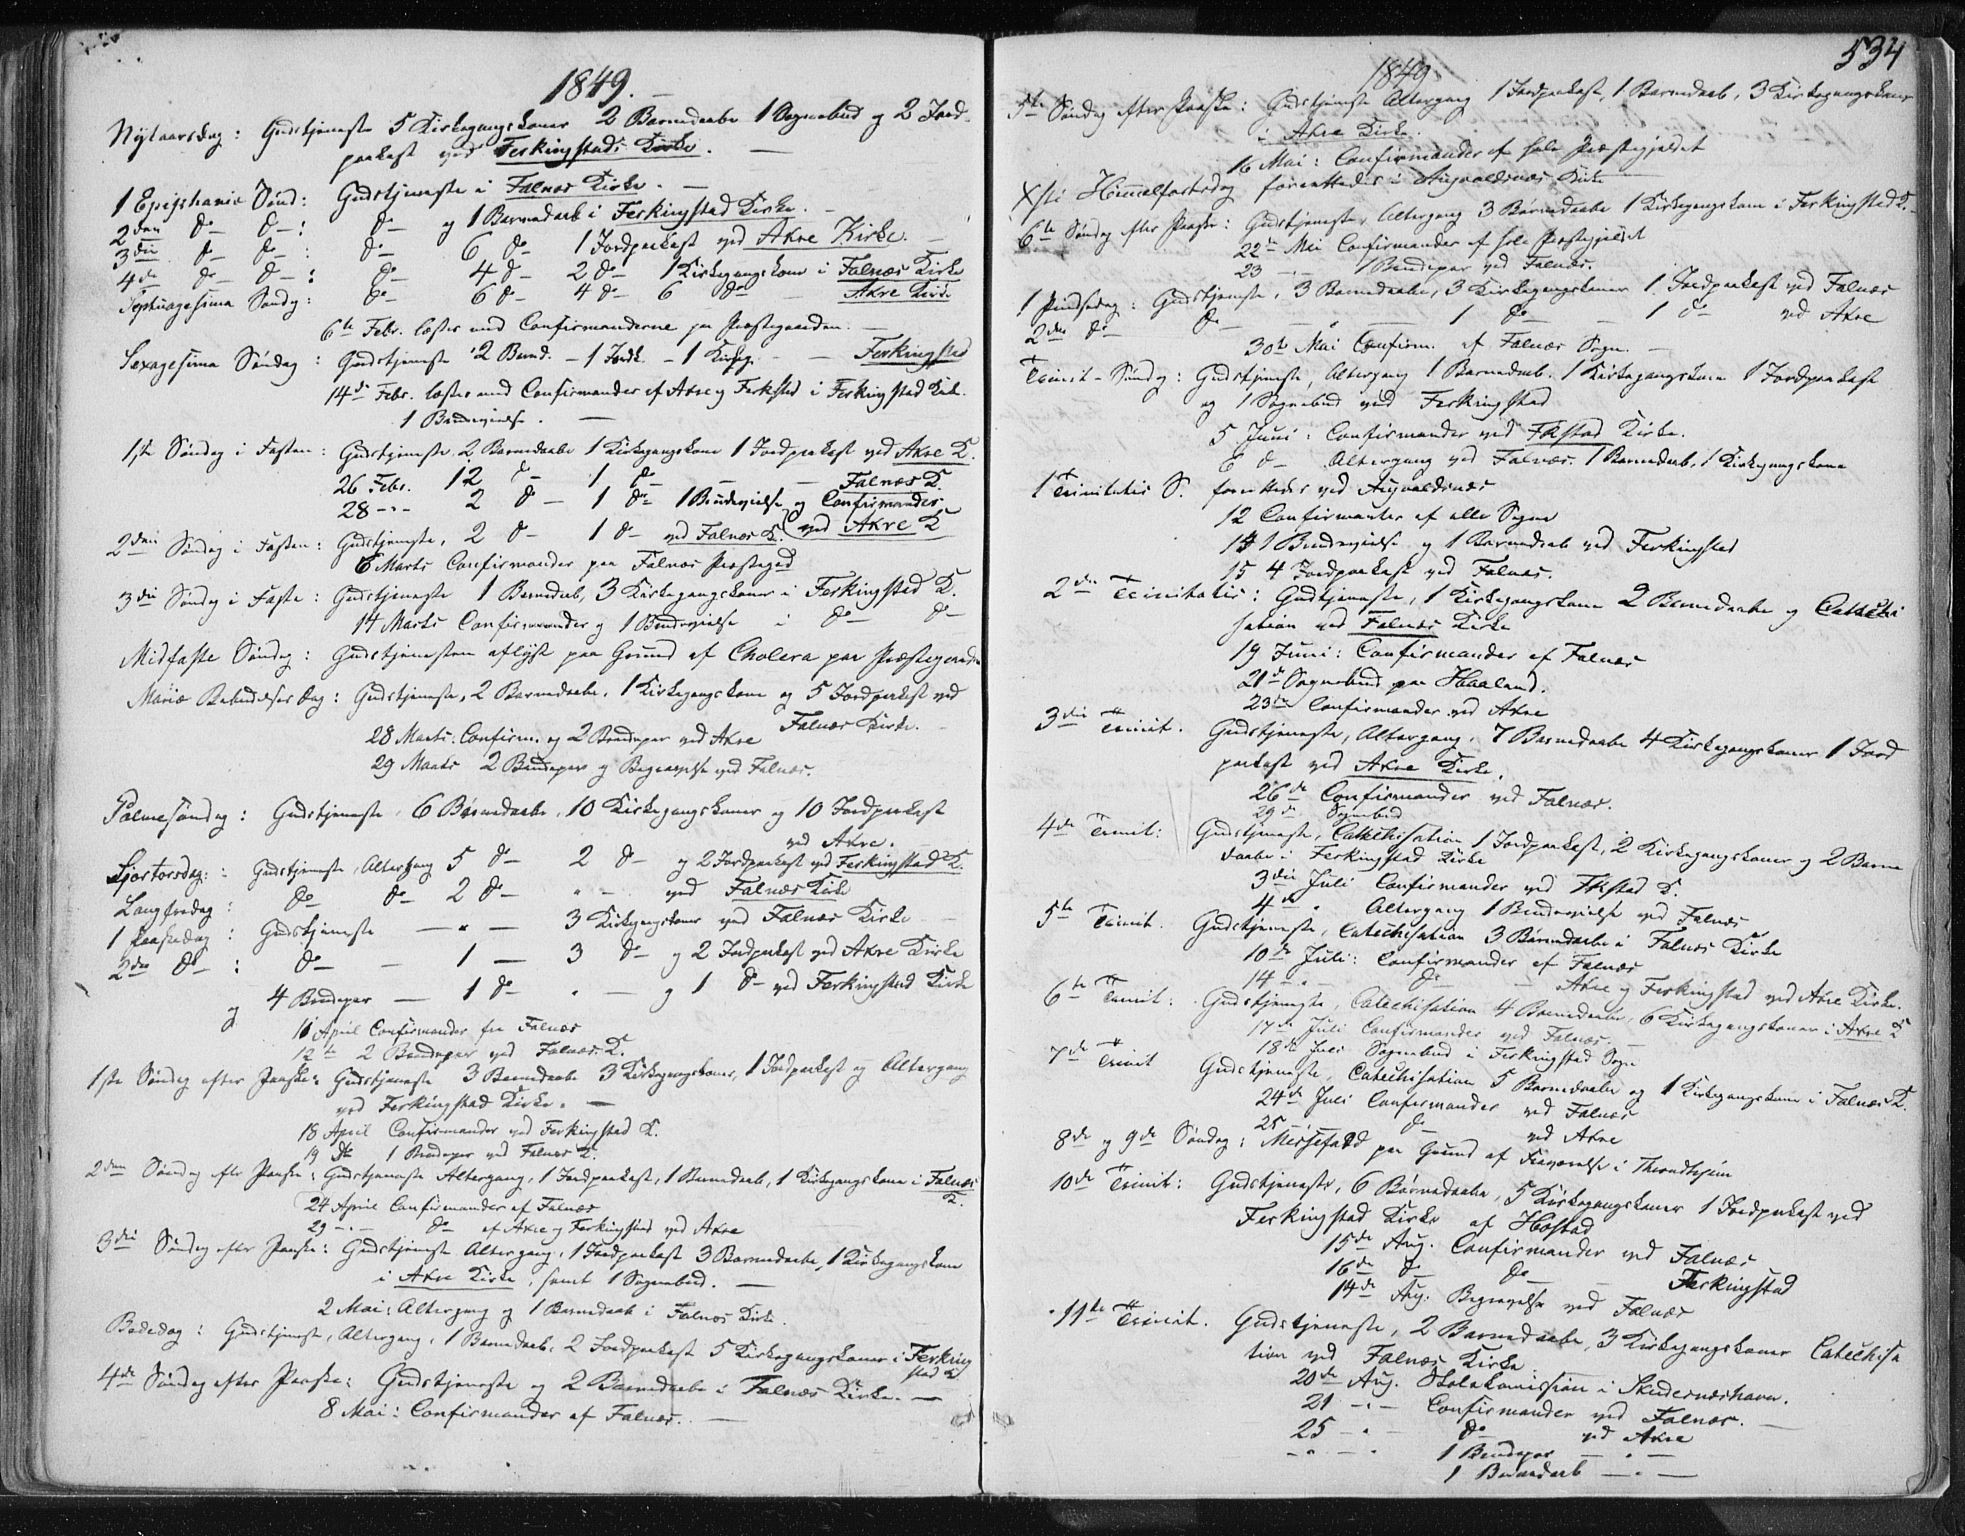 1849.
Nytaarsdag: Gudstjeneste 5 Kirkegangskoner 2 Barnedaabe 1 Sognebud og 2 Jord-
paakast ved Ferkingstads Kirke.
1 Epiphaniæ Sønd: Gudstjeneste i Falnæs Kirke. —
2den do — do —: do — og 1 Barnedaab i Ferkingstad Kirke. —
3die do — do —: do — 6 do — 1 Jordpaakast ved Akre Kirke. —
4de do — do —: do — 4 do — 2 do — 1 Kirkegangskone i Falnæs Kirke
Septuagesima Søndag: do — 6 do — 4 do — 6 do — Akre Kirke
6te Febr. læstes med Confirmanderne paa Præstegaarden. —
Sexagesima Søndag: Gudstjeneste 2 Barnd. — 1 Jordk. — 1 Kirkeg. — Ferkingstad
14de Febr. læstes med Confirmander af Akre og Ferkstad i Ferkingstad Kirke.
1 Brudevielse. —
1ste Søndag i Fasten: Gudstjeneste 2 Barnedaabe 1 Kirkegangskone 1 Jordpaakast ved Akre K.
26 Febr. 12 do — 1 do — — Falnæs K.
28 — 2 do — 1 do — 1 Brudevielse og Confirmander
ved Akre K
2den Søndag i Fasten: Gudstjeneste, 2 do — 1 do — ved Falnæs K.
6 Marts Confirmander paa Falnæs Præstegd
3die Søndag i Faste: Gudstjeneste 1 Barnedaab, 3 Kirkegangskoner i Ferkingstad K.
14 Marts Confirmander og 1 Brudevielse i do — do —
Midfaste Søndag: Gudstjenesten aflyst paa Grund af Cholera paa Præstegaarden
Mariæ Bebudelses Dag: Gudstjeneste, 2 Barnedaabe, 1 Kirkegangskone og 5 Jordpaakast ved
Falnæs Kirke. —
28 Marts. Confirm. og 2 Brudepar ved Akre
29 Marts 2 Brudepar og Begravelse ved Falnæs.
Palmesøndag: Gudstjeneste, 6 Barnedaabe, 10 Kirkegangskoner og 10 Jordpaakast
ved Akre.
Skjærtorsdag: Gudstjeneste, Altergang 5 do — 2 do — og 2 Jordpaakast ved Ferkingstad K.
Langfredag: do — do — 2 do — " — ved Falnæs Kirke
1 Paaskedag: Gudstjeneste — " — 3 Kirkegangskoner ved Falnæs Kirke —
2den do —: do — — 1 — 3 do — og 2 Jordpaakast ved Akre Kirke
og 4 Brudepar — 1 do — " — og 1 do — ved Ferkingstad Kirke
11 April Confirmander fra Falnæs
12te 2 Brudepar ved Falnæs K.
1ste Søndag efter Paaske: Gudstjeneste 3 Barnedaabe 3 Kirkegangskoner, 1 Jordpaakast og Altergang
ved Ferkingstad Kirke. —
18 April Confirmander ved Ferkingstad K.
19 do 1 Brudepar ved Falnæs K.
2den Søndag efter Paaske: Gudstjeneste Altergang, 1 Jordpaakast, 1 Barnedaab, 1 Kirkegangskone i Falnæs
K.
24 April Confirmander af Falnæs
29 — do — af Akre og Ferkingstad ved Akre
3die Søndag efter Paaske: Gudstjeneste Altergang, 1 Jordpaakast 3 Barnedaabe, 1 Kirkegangskone
i Akre Kirke, samt 1 Sognebud. —
2 Mai: Altergang og 1 Barnedaab i Falnæs Kirke.
Bededag: Gudstjeneste, Altergang, 1 Barnedaab, 2 Jordpaakast 5 Kirkegangskoner i Ferking
stad K
4de Søndag efter Paaske: Gudstjeneste og 2 Barnedaabe i Falnæs Kirke. —
8 Mai: Confirmander af Falnæs. —
534
1849
5te Søndag efter Paaske: Gudstjeneste Altergang 1 Jordpaakast, 1 Barnedaab, 3 Kirkegangskoner
i Akre Kirke.
16 Mai: Confirmander af hele Præstegjeldet
Xsti Himmelfartsdag forrettedes i Augvaldsnæs Kirke
6te Søndag efter Paaske: Gudstjeneste, Altergang 3 Barnedaabe 1 Kirkegangskone i Ferkingstad K. —
22de Mai Confirmander af hele Præstegjeldet
23 — 1 Brudepar ved Falnæs.
1 Pindsedag: Gudstjeneste, 3 Barnedaabe, 3 Kirkegangskoner 1 Jordpaakast ved Falnæs
2den do — do — — " — — 1 do — — 1 do — ved Akre
30te Mai Confirm. af Falnæs Sogn. —
Trinit-Søndag: Gudstjeneste, Altergang 1 Barnedaab. 1 Kirkegangskone 1 Jordpaakast
og 1 Sognebud ved Ferkingstad
5 Juni: Confirmander ved Fkstad Kirke.
6 do — Altergang ved Falnæs. 1 Barnedaab, 1 Kirkegangskone
1 Trinitatis S. forrettedes ved Augvaldsnæs
12 Confirmanter af alle Sogne
14 1 Brudevielse og 1 Barnedaab ved Ferkingstad
15 4 Jordpaakast ved Falnæs.
2den Trinitatis: Gudstjeneste, 1 Kirkegangskone 2 Barnedaabe og Catechi
sation ved Falnæs Kirke
19 Juni: Confirmander af Falnæs
21de Sognebud paa Haaland.
23de Confirmander ved Akre
3die Trinit. Gudstjeneste, Altergang, 7 Barnedaabe 4 Kirkegangskoner 1 Jord
paakast ved Akre Kirke.
26de Confirmander ved Falnæs.
29de Sognebud
4de Trinit: Gudstjeneste, Catechisation 1 Jordpaakast, 2 Kirkegangskoner og 2 Barne
daabe i Ferkingstad Kirke
3die Juli Confirmander ved Fkstad K.
4de " Altergang 1 Brudevielse ved Falnæs
5te Trinit. Gudstjeneste, Catechisation 3 Barnedaabe i Falnæs Kirke
10de Juli: Confirmander af Falnæs
14 — " — do — — Akre og Ferkingstad ved Akre Kirke.
6te Trinit: Gudstjeneste, Catechisation 4 Barnedaabe, 6 Kirkegangskoner i Akre K
17de Juli Confirmander ved Falnæs. —
18de Juli Sognebud i Ferkingstad Sogn
7de Trinit Gudstjeneste, Catechisation 5 Barnedaabe og 1 Kirkegangskone i Falnæs K.
24de Juli Confirmander ved Falnæs
25 — do — ved Akre
8de og 9de Søndag: Messefald paa Grund af Fraværelse i Throndhjem
10de Trinit: Gudstjeneste, 6 Barnedaabe, 5 Kirkegangskoner 1 Jordpaakast ved
Ferkingstad Kirke af Hostad
15de Aug. Confirmander ved Falnæs
16de do — do — Ferkingstad
14de Aug. Begravelse ved Falnæs
11te Trinit. Gudstjeneste, 2 Barnedaabe, 3 Kirkegangskoner Catechisa
tion ved Falnæs Kirke.
20de Aug. Skolekomission i Skudesnæshavn.
21 — " — Confirmander ved Falnæs. —
25 — " — do — ved Akre
— " — " 1 Brudepar — " —
1 Barnedaab — " —